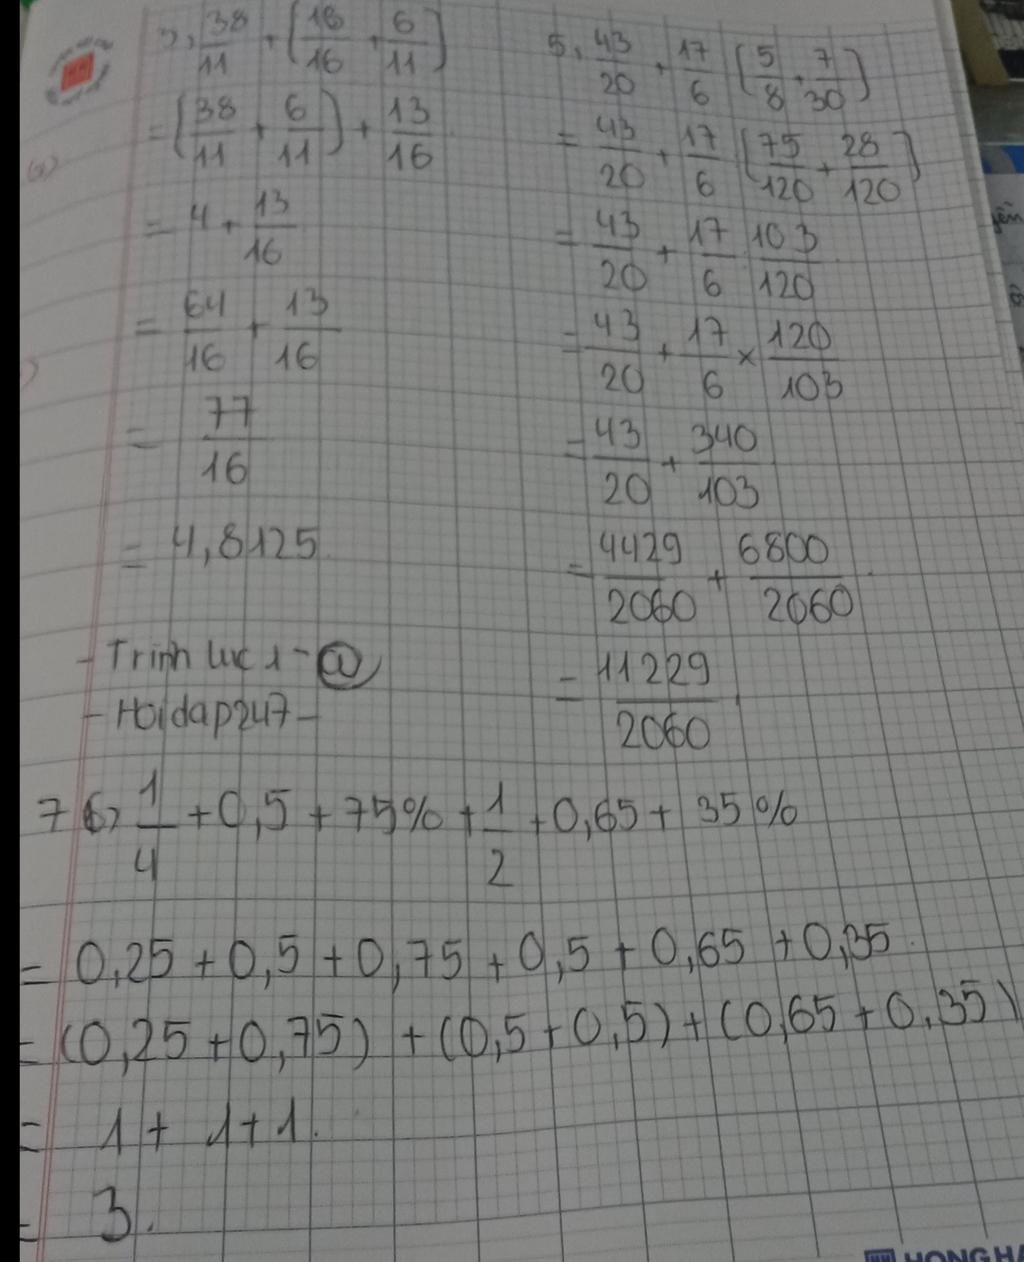 38/11 + (18/16 + 6/11)
= (38/11 + 6/11) + 13/16
= 4 + 13/16
= 64/16 + 13/16
= 77/16
= 4,8125
- Trinh luc 1 - @
- Hoidap247 -
5, 43/20 + 17/6 (5/8 + 7/30)
= 43/20 + 17/6 (75/120 + 28/120)
= 43/20 + 17/6 103/120
= 43/20 + 17/6 × 120/103
= 43/20 + 340/103
= 4429/2060 + 6800/2060
= 11229/2060
7 6) 1/4 + 0,5 + 75% + 1/2 + 0,65 + 35%
= 0,25 + 0,5 + 0,75 + 0,5 + 0,65 + 0,35
= (0,25 + 0,75) + (0,5 + 0,5) + (0,65 + 0,35)
= 1 + 1 + 1.
= 3.